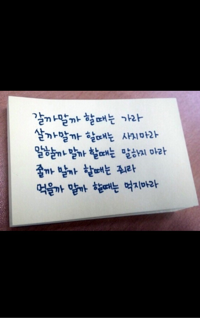 갈까말까 할때는 가라
살까말까 할때는 사지마라
말할까 말까 할때는 말하지 마라
줄까 말까 할때는 줘라
먹을까 말까 할때는 먹지마라